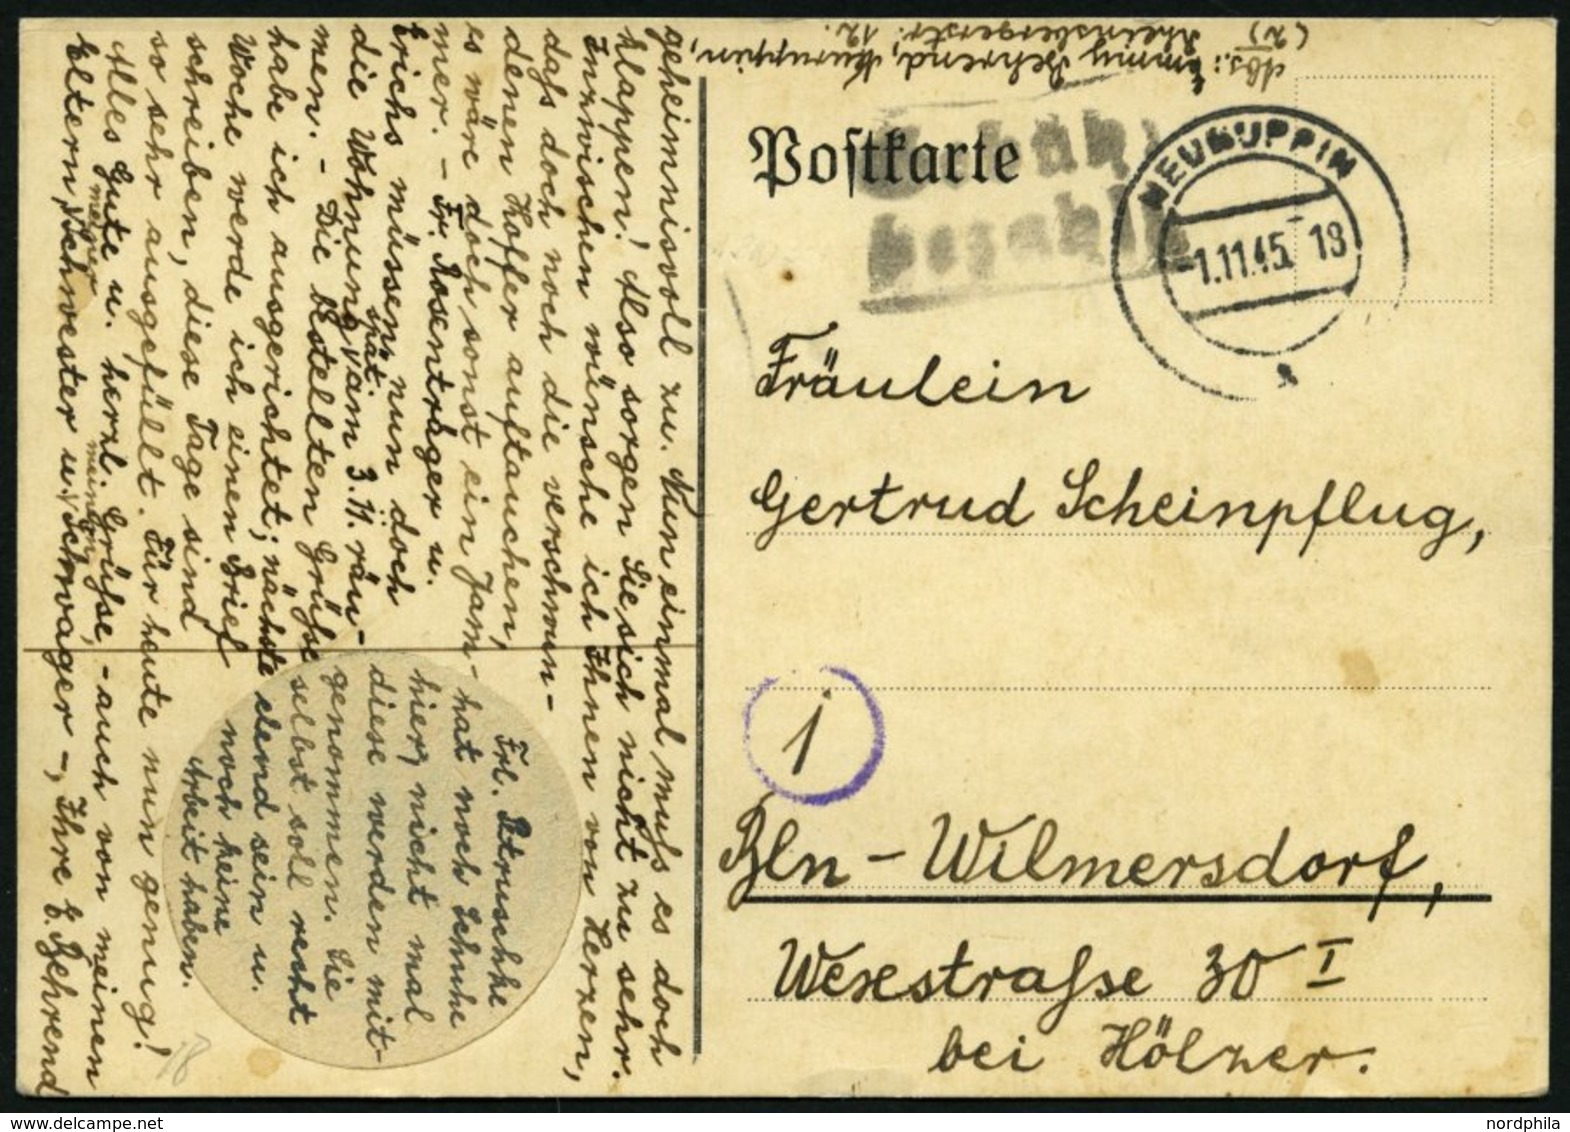 geheimnisvoll zu. Nun einmal muß es doch
klappen! Also sorgen Sie sich nicht zu sehr.
Inzwischen wünsche ich Ihnen von Herzen,
daß doch noch die verschwun-
denen Koffer auftauchen,
es wäre doch sonst ein Jam-
mer. – Fr. Rosenträger u.
Erichs müssen nun doch
die Wohnung spät. am 3.11. räu-
men. – Die bestellten Grüße
habe ich ausgerichtet; nächste
Woche werde ich einen Brief
schreiben, diese Tage sind
so sehr ausgefüllt. Für heute nun genug!
Alles Gute u. herzl. Grüße, – auch von meinen
Eltern, meiner Schwester u. meinem Schwager –, Ihre E. Behrend
Frl. Petruschke
hat noch Schuhe
hier, nicht mal
diese werden mit-
genommen. Sie
selbst soll recht
elend sein u.
noch keine
Arbeit haben.
18
Abs.: Emmy Behrend, Neuruppin,
(2) Rheinsbergerstr. 12.
Postkarte
Gebühr
bezahlt
NEURUPPIN
-1.11.45. 18
Fräulein
Gertrud Scheinpflug,
1
Bln – Wilmersdorf,
Wesestraße 30 I
bei Hölzer.
nordphila